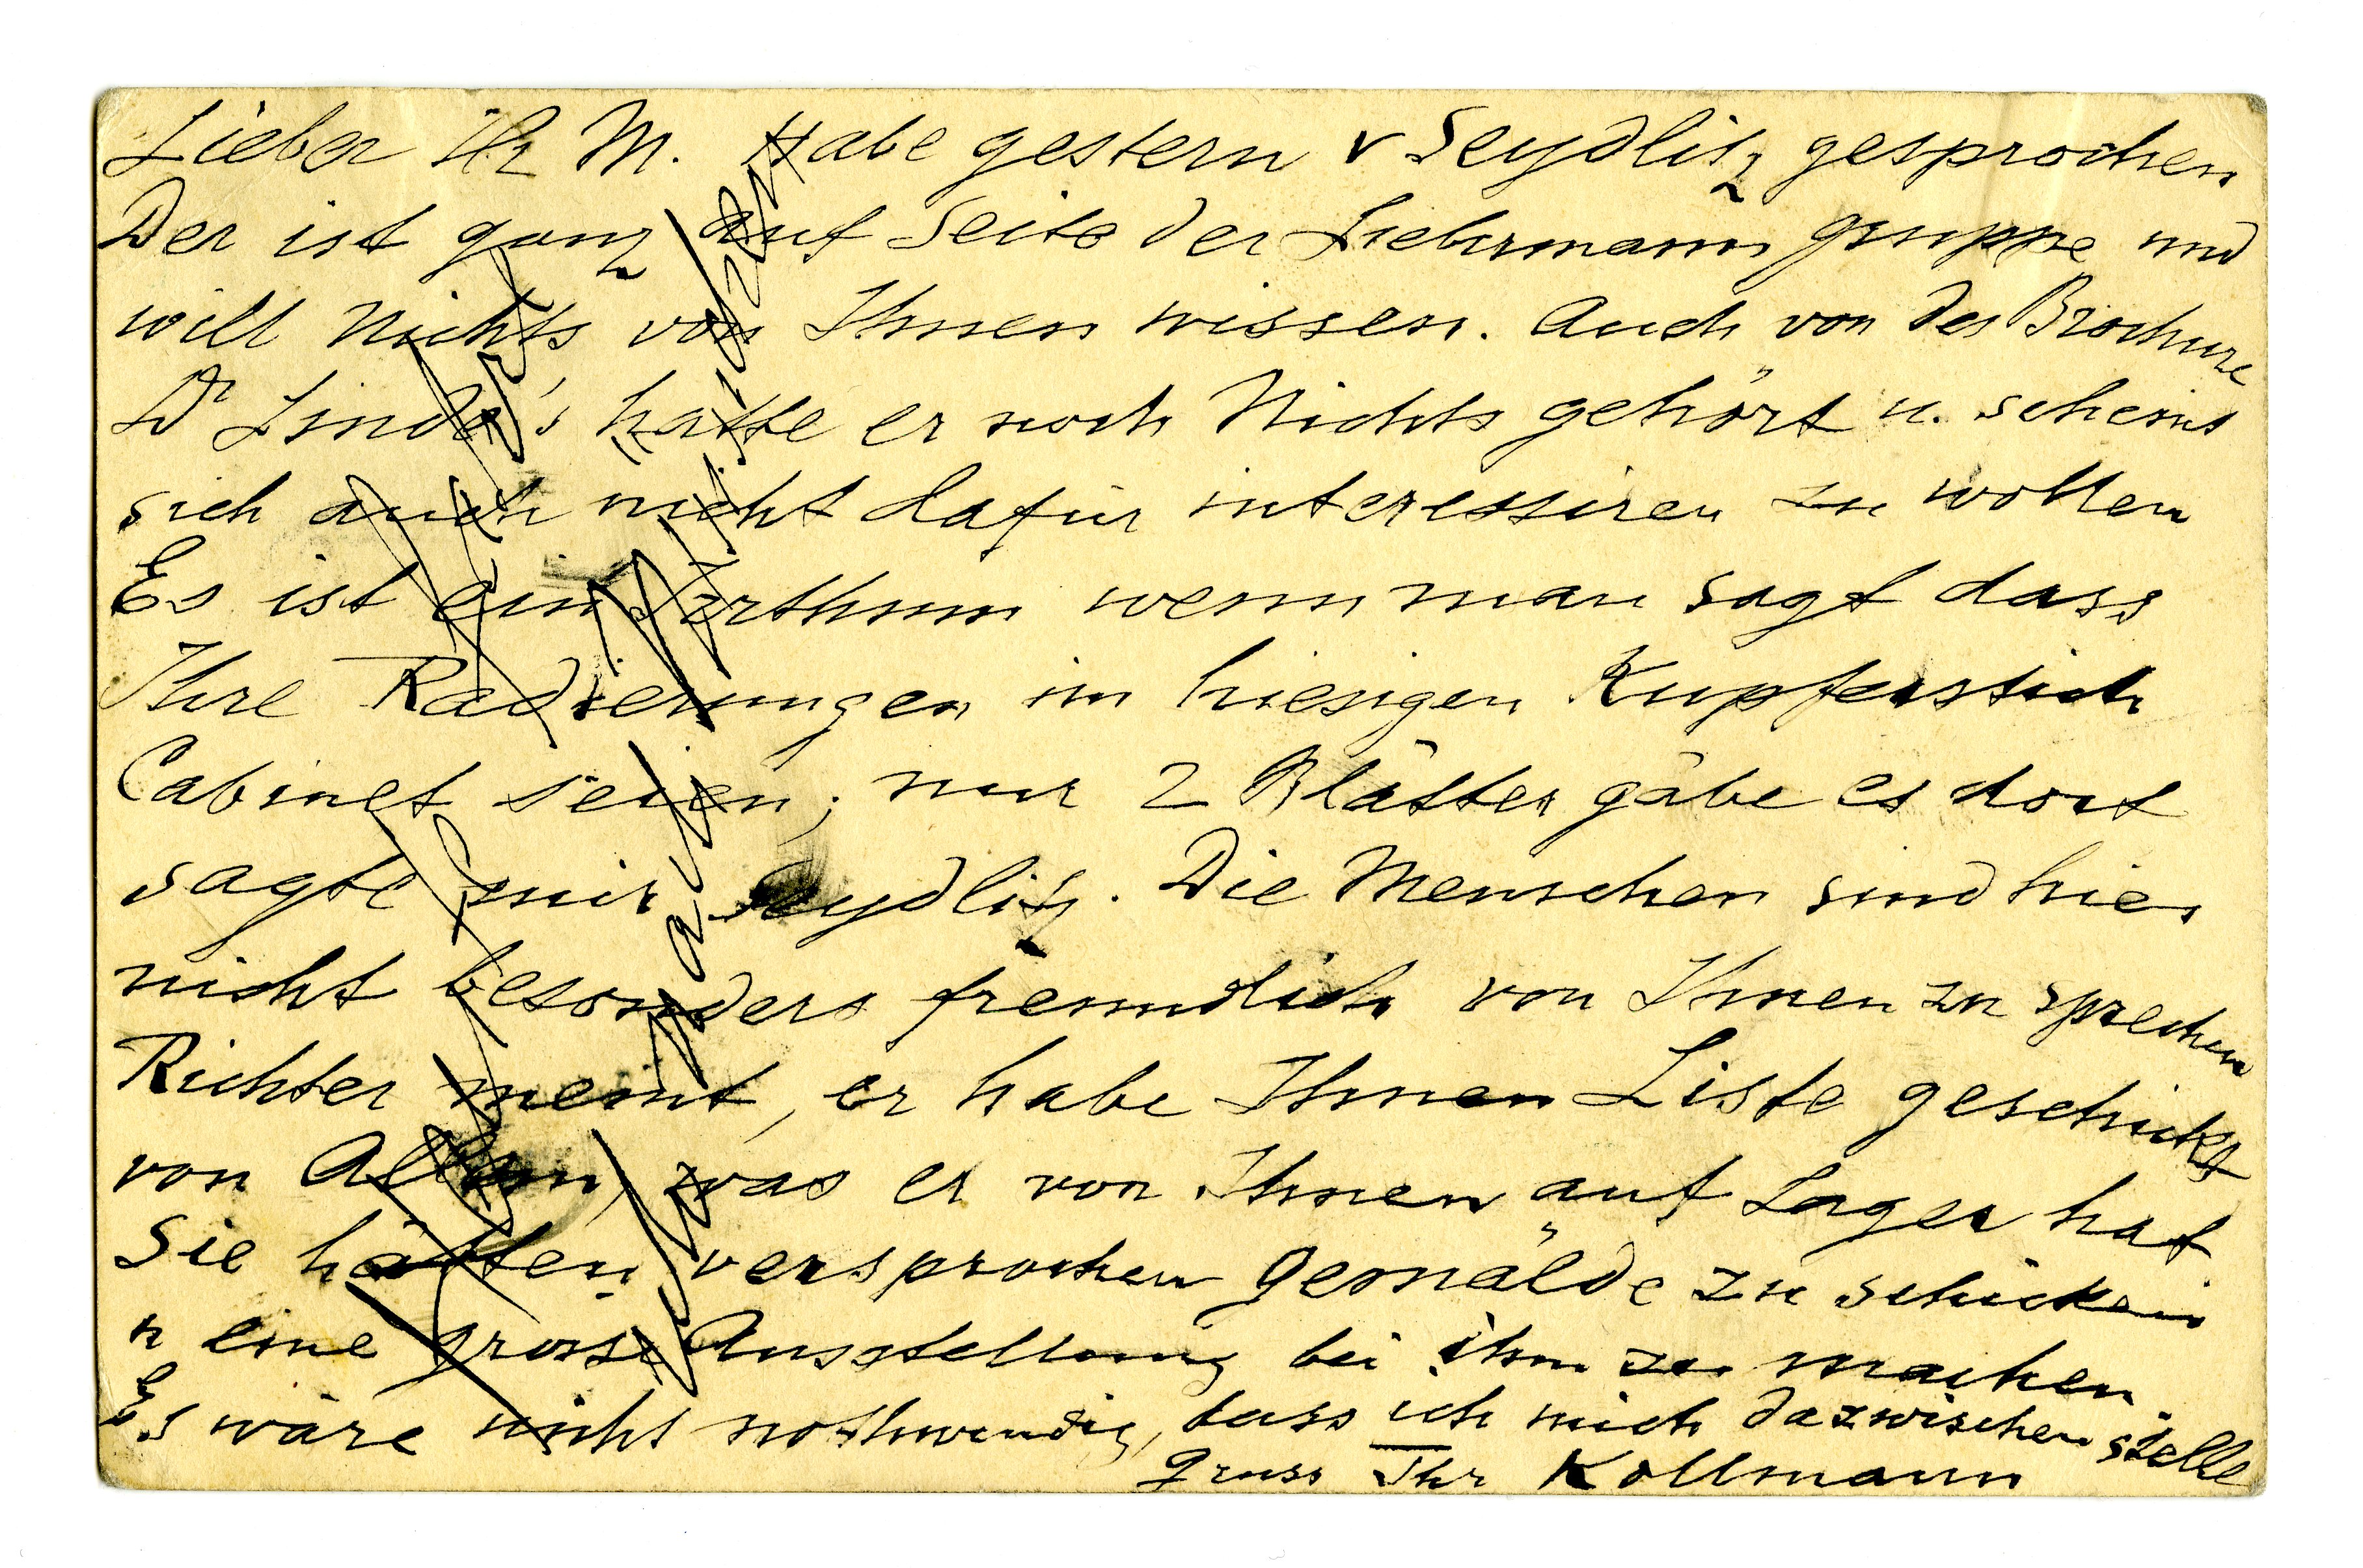 Lieber Hr M. Habe gestern v Seydlitz gesprochen
Der ist ganz auf Seite der Liebermann gruppe und
will Nichts von Ihnen wissen. Auch von der Brochure
Dr Linde's hatte er noch Nichts gehört u. scheint
sich auch nicht dafür interessiren zu wollen
Es ist ein Irrthum wenn man sagt dass
Ihre Radierungen im hiesigen Kupferstich
Cabinet seien; nur 2 Blätter gäbe es dort
sagte mir Seydlitz. Die Menschen sind hier
nicht besonders freundlich von Ihnen zu sprechen
Richter meint, er habe Ihnen Liste geschickt
von Allem, was er von Ihnen auf Lager hat
Sie hätten versprochen Gemälde zu schicken
u eine grosse Ausstellung bei ihm zu machen
Es wäre nicht nothwendig, dass ich mich dazwischen stelle
Gruss Ihr Kollmann